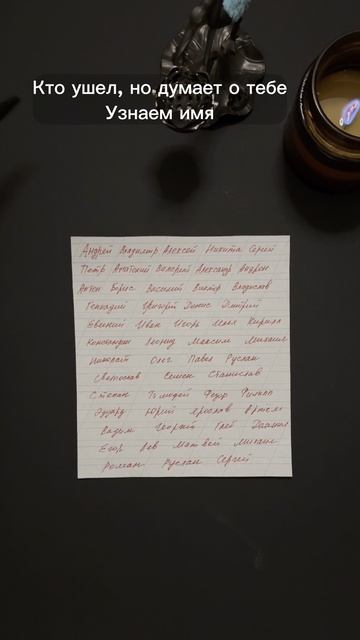 Кто ушел, но думает о тебе
Узнаем имя
Андрей Владимир Алексей Никита Сергей
Петр Анатолий Валерий Александр Андрон
Антон Борис Василий Виктор Владислав
Геннадий Григорий Денис Дмитрий
Евгений Иван Игорь Илья Кирилл
Константин Леонид Максим Михаил
Николай Олег Павел Руслан
Святослав Семен Станислав
Степан Тимофей Федор Филипп
Эдуард Юрий Ярослав Артем
Вадим Георгий Глеб Даниил
Егор Лев Матвей Михаил
Роман Руслан Сергей